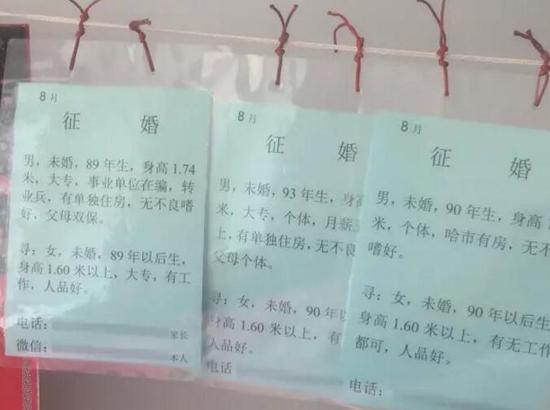 8月
征 婚
男，未婚，89年生，身高1.74
米，大专，事业单位在编，转
业兵，有单独住房，无不良嗜
好，父母双保。
寻：女，未婚，89年以后生，
身高1.60米以上，大专，有工
作，人品好。
电话：
家长
微信：
本人
8月
征 婚
男，未婚，93年生，身高
米，大专，个体，月薪
上，有单独住房，无不
父母个体。
寻：女，未婚，90年以
身高1.60米以上，有
人品好。
电话
8月
征 婚
男，未婚，90年生，身高
米，个体，哈市有房，无不
嗜好。
寻：女，未婚，90年以后生
身高1.60米以上，有无工作
都可，人品好。
电话：